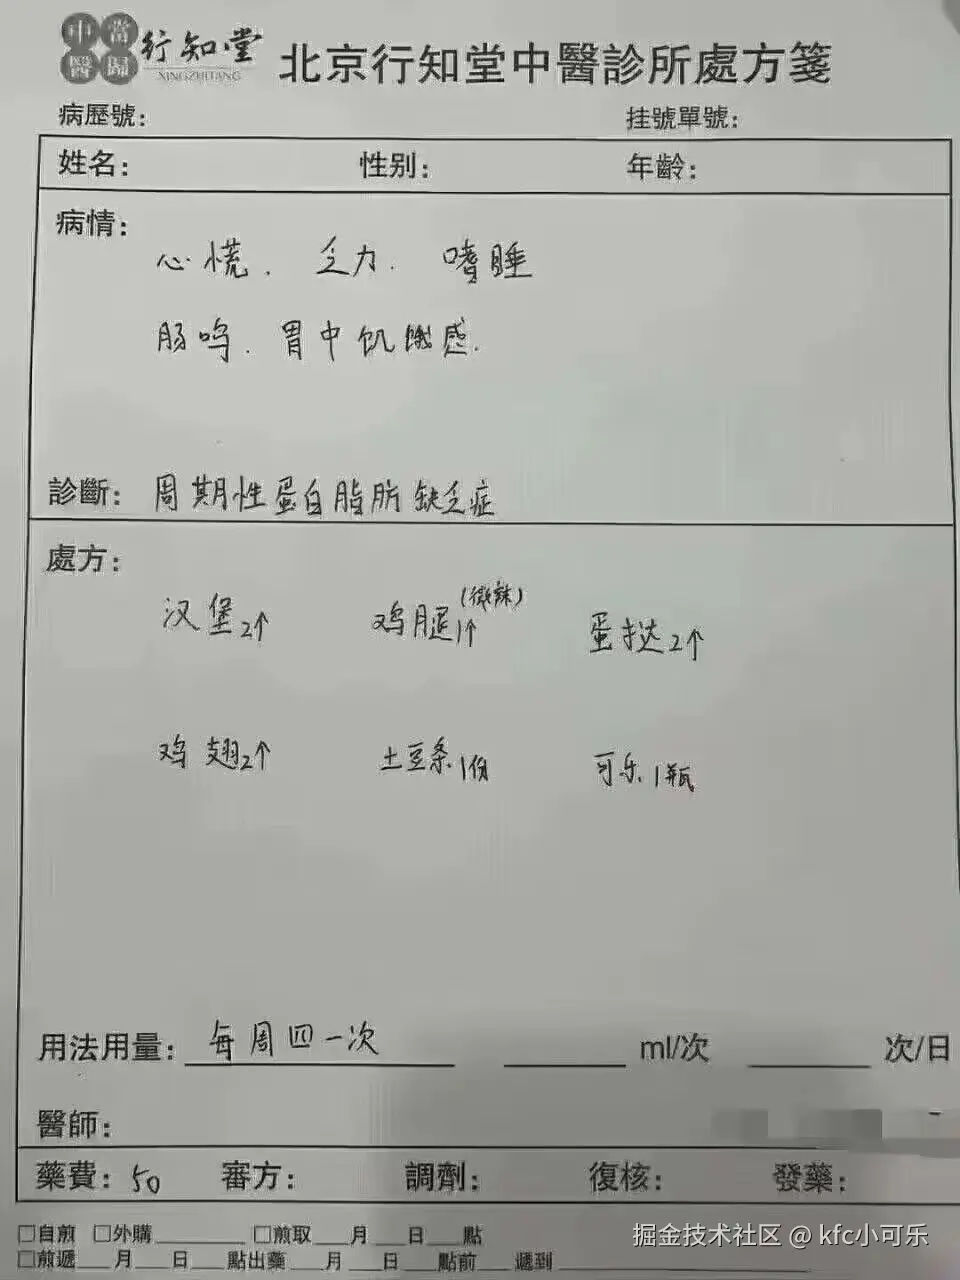 中當醫歸
行知堂
XINGZHITANG
北京行知堂中醫診所處方箋
病歷號：
挂號單號：
姓名： 性别： 年齡：
病情：
心慌． 乏力． 嗜睡
肠鸣． 胃中饥饿感．
診斷： 周期性蛋白脂肪缺乏症
處方：
汉堡2个 鸡腿1个（微辣） 蛋挞2个
鸡翅2个 土豆条1份 可乐1瓶
用法用量： 每周四一次 ml/次 次/日
醫師：
藥費：50 審方： 調劑： 復核： 發藥：
□自煎 □外購 □煎取 月 日 點
□煎遞 月 日 點出藥 月 日 點前 遞到
掘金技术社区 @ kfc小可乐